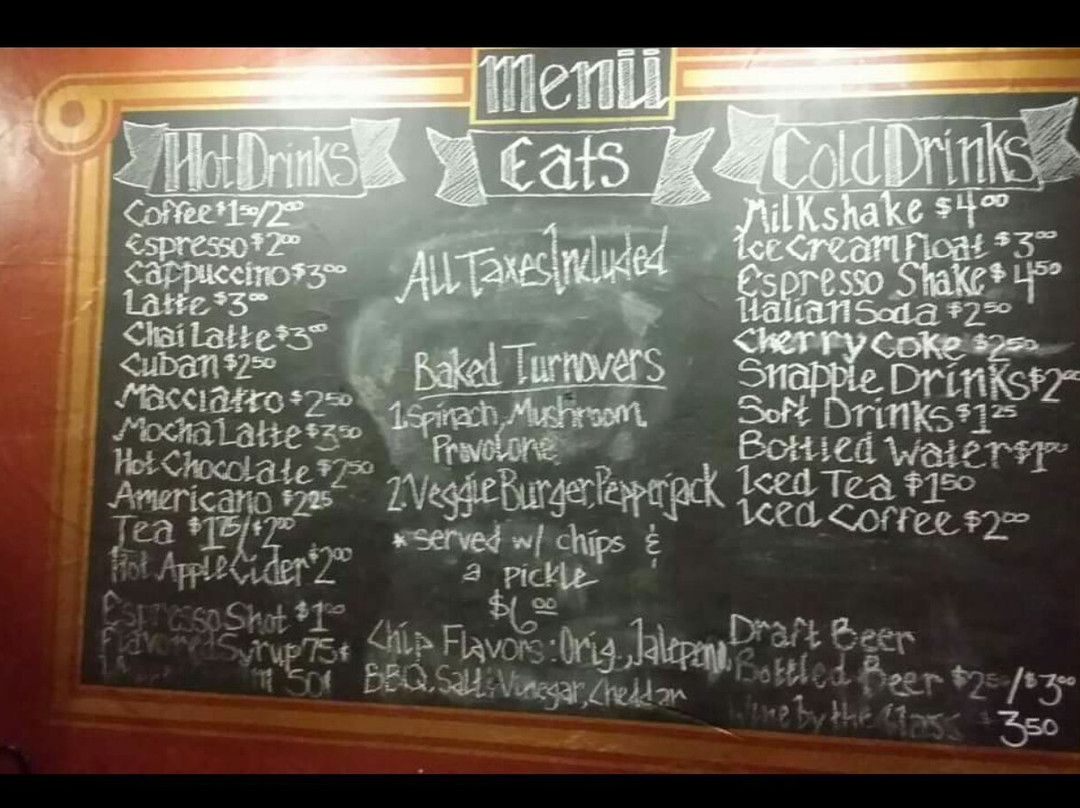 Menü
Hot Drinks
Coffee $1.50/2.00
Espresso $2.00
Cappuccino $3.00
Latte $3.00
Chai Latte $3.00
Cuban $2.50
Macciatto $2.50
Mocha Latte $3.50
Hot Chocolate $2.50
Americano $2.25
Tea $1.75/$2.00
Hot Apple Cider $2.00
Espresso Shot $1.00
Flavored Syrup 75¢
50¢
Eats
All Taxes Included
Baked Turnovers
1 Spinach, Mushroom,
Provolone
2 Veggie Burger, Pepperjack
* served w/ chips &
a pickle
$6.00
Chip Flavors: Orig., Jalepeno,
BBQ, Salt & Vinegar, Cheddar
Cold Drinks
Milkshake $4.00
Ice Cream Float $3.00
Espresso Shake $4.50
Italian Soda $2.50
Cherry Coke $2.50
Snapple Drinks $2.00
Soft Drinks $1.25
Bottled Water $1.00
Iced Tea $1.50
Iced Coffee $2.00
Draft Beer
Bottled Beer $2.50/$3.00
Wine by the Glass 3.50